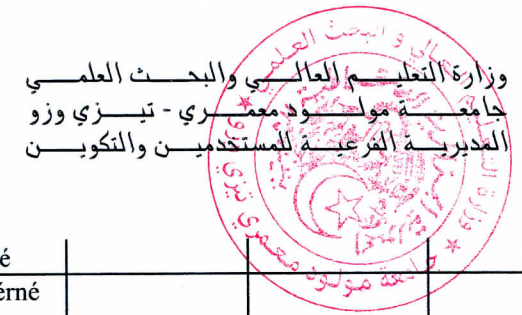 وزارة التعليم العالي والبحث العلمي
جامعة مولود معمري - تيزي وزو
المديرية الفرعية للمستخدمين والتكوين
é
érné
جامعة مولود معمري تيزي وزو